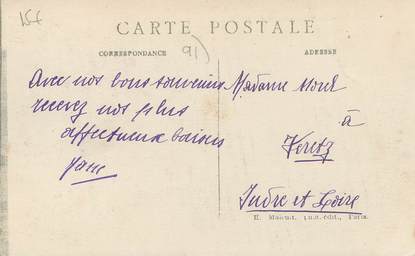 15€
CARTE POSTALE
CORRESPONDANCE
91)
ADRESSE
Avec nos bons souvenirs
recevez nos plus
affectueux baisers
Madame
à
Véretz
Indre et Loire
impr.-édit., Paris.